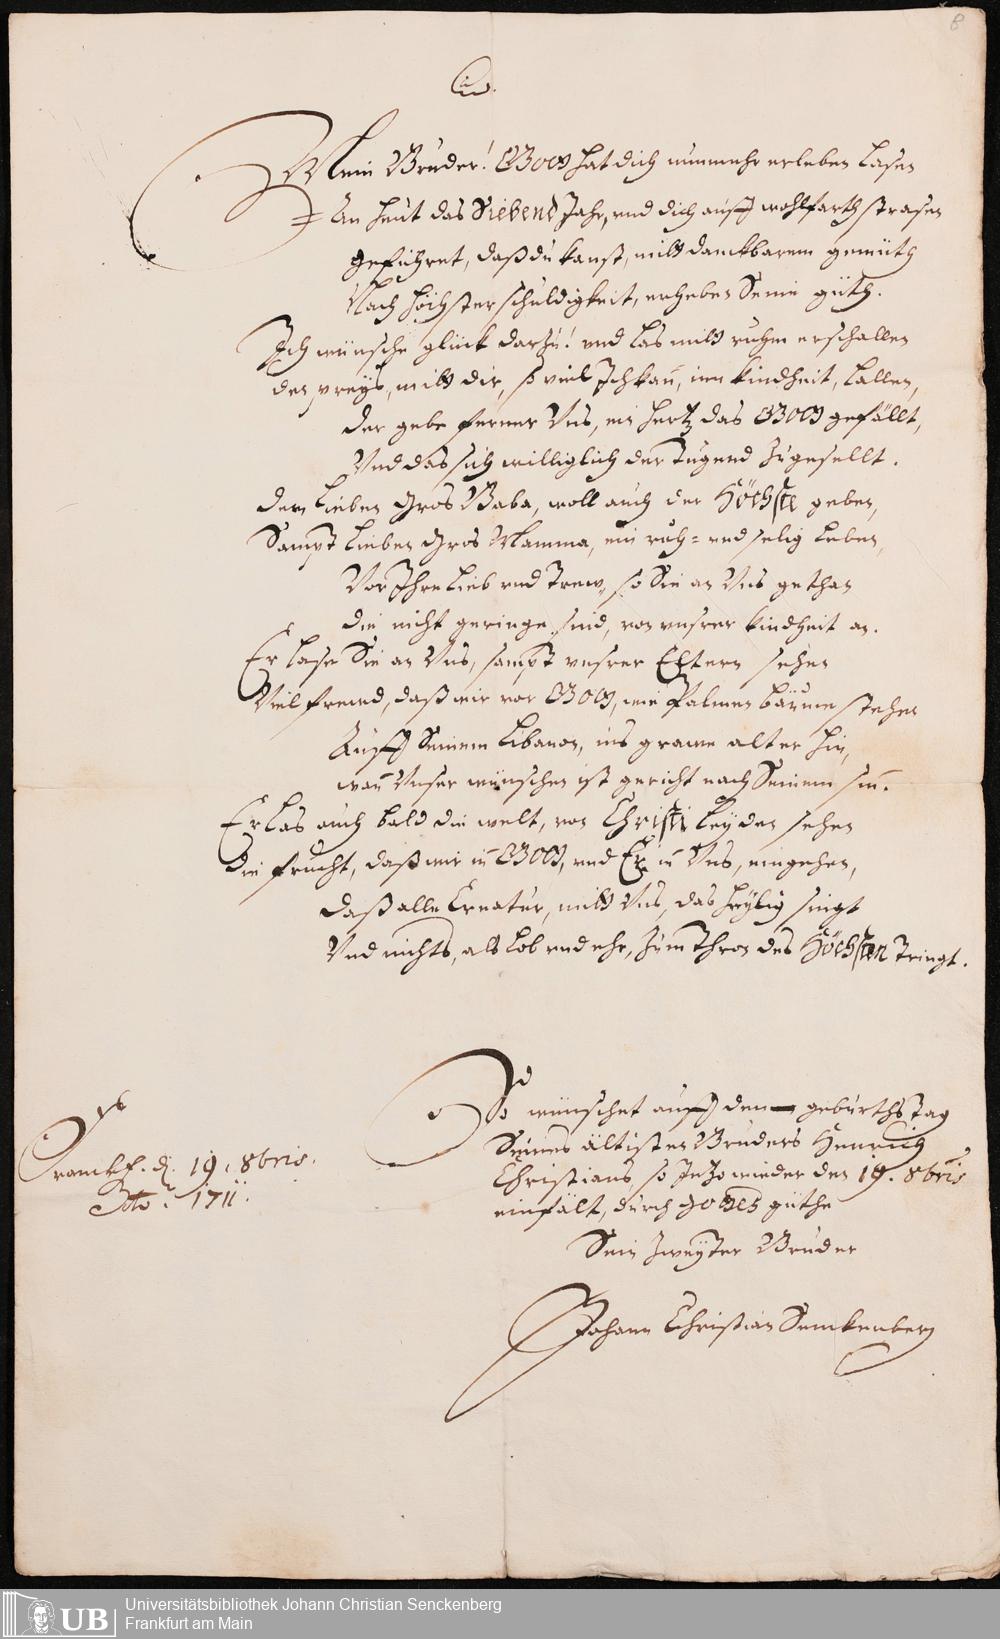 Mein Bruder! GOtt hat dich nunmehr erleben lasen
An heut das Siebend Jahr, und dich auff wohlfarth strasen
geführet, daß du kanst, mitt danckbarem gemüth
Nach höchster schuldigkeit, erheben Seine güth.
Ich wünsche glück darzu! und las mitt ruhm erschallen
den preyß, mitt dir, so viel Ich kan̄, inn kindheit, lallen,
der gebe ferner Uns, ein hertz das GOtt gefällt,
Und das sich williglich der Tugend zugesellt.
dem Lieben Gros Baba, woll auch der Höchste geben,
Sampt Lieben Gros Mamma, ein ruh- und selig Leben,
Vor Ihre Lieb und Trew, so Sie an Uns gethan
die nicht geringe sind, von unsrer kindheit an.
Er lase Sie an Uns, sampt unsrer Eltern sehen
Viel frewd, daß wir vor GOtt, wie Palmen bäume stehen
Auff Seinem Libanon, ins grawe alter hin,
wan̄ Unser wünschen ist gericht nach Seinem sin̄.
Er las auch bald die welt, von Christi Leyden sehen
die frucht, daß wir in GOtt, und Er in Uns, eingehen,
daß alle Creatur, mitt Uns, das heylig singt
Und nichts, als Lob und ehr, zum Thron des Höchsten Tringt.
So wünschet auff den geburthstag
Seines ältisten Bruders Henrich
Christians, so Itzo wieder den 19. 8bris
einfält, durch Gottes güthe
Sein Zweyter Bruder
Johann Christian Senckenberg
Franckf. d. 19. 8bris.
Ao. 1711.
Universitätsbibliothek Johann Christian Senckenberg
Frankfurt am Main
UB